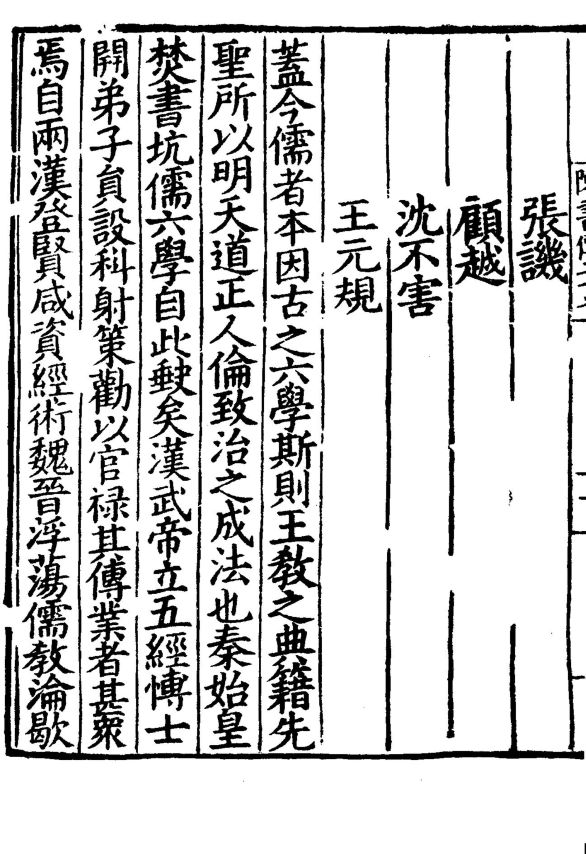 張譏
顧越
沈不害
王元規
蓋今儒者本因古之六學斯則王教之典籍先
聖所以明天道正人倫致治之成法也秦始皇
焚書坑儒六學自此缺矣漢武帝立五經博士
開弟子員設科射策勸以官祿其傳業者甚衆
焉自兩漢登賢咸資經術魏晉浮蕩儒教淪歇